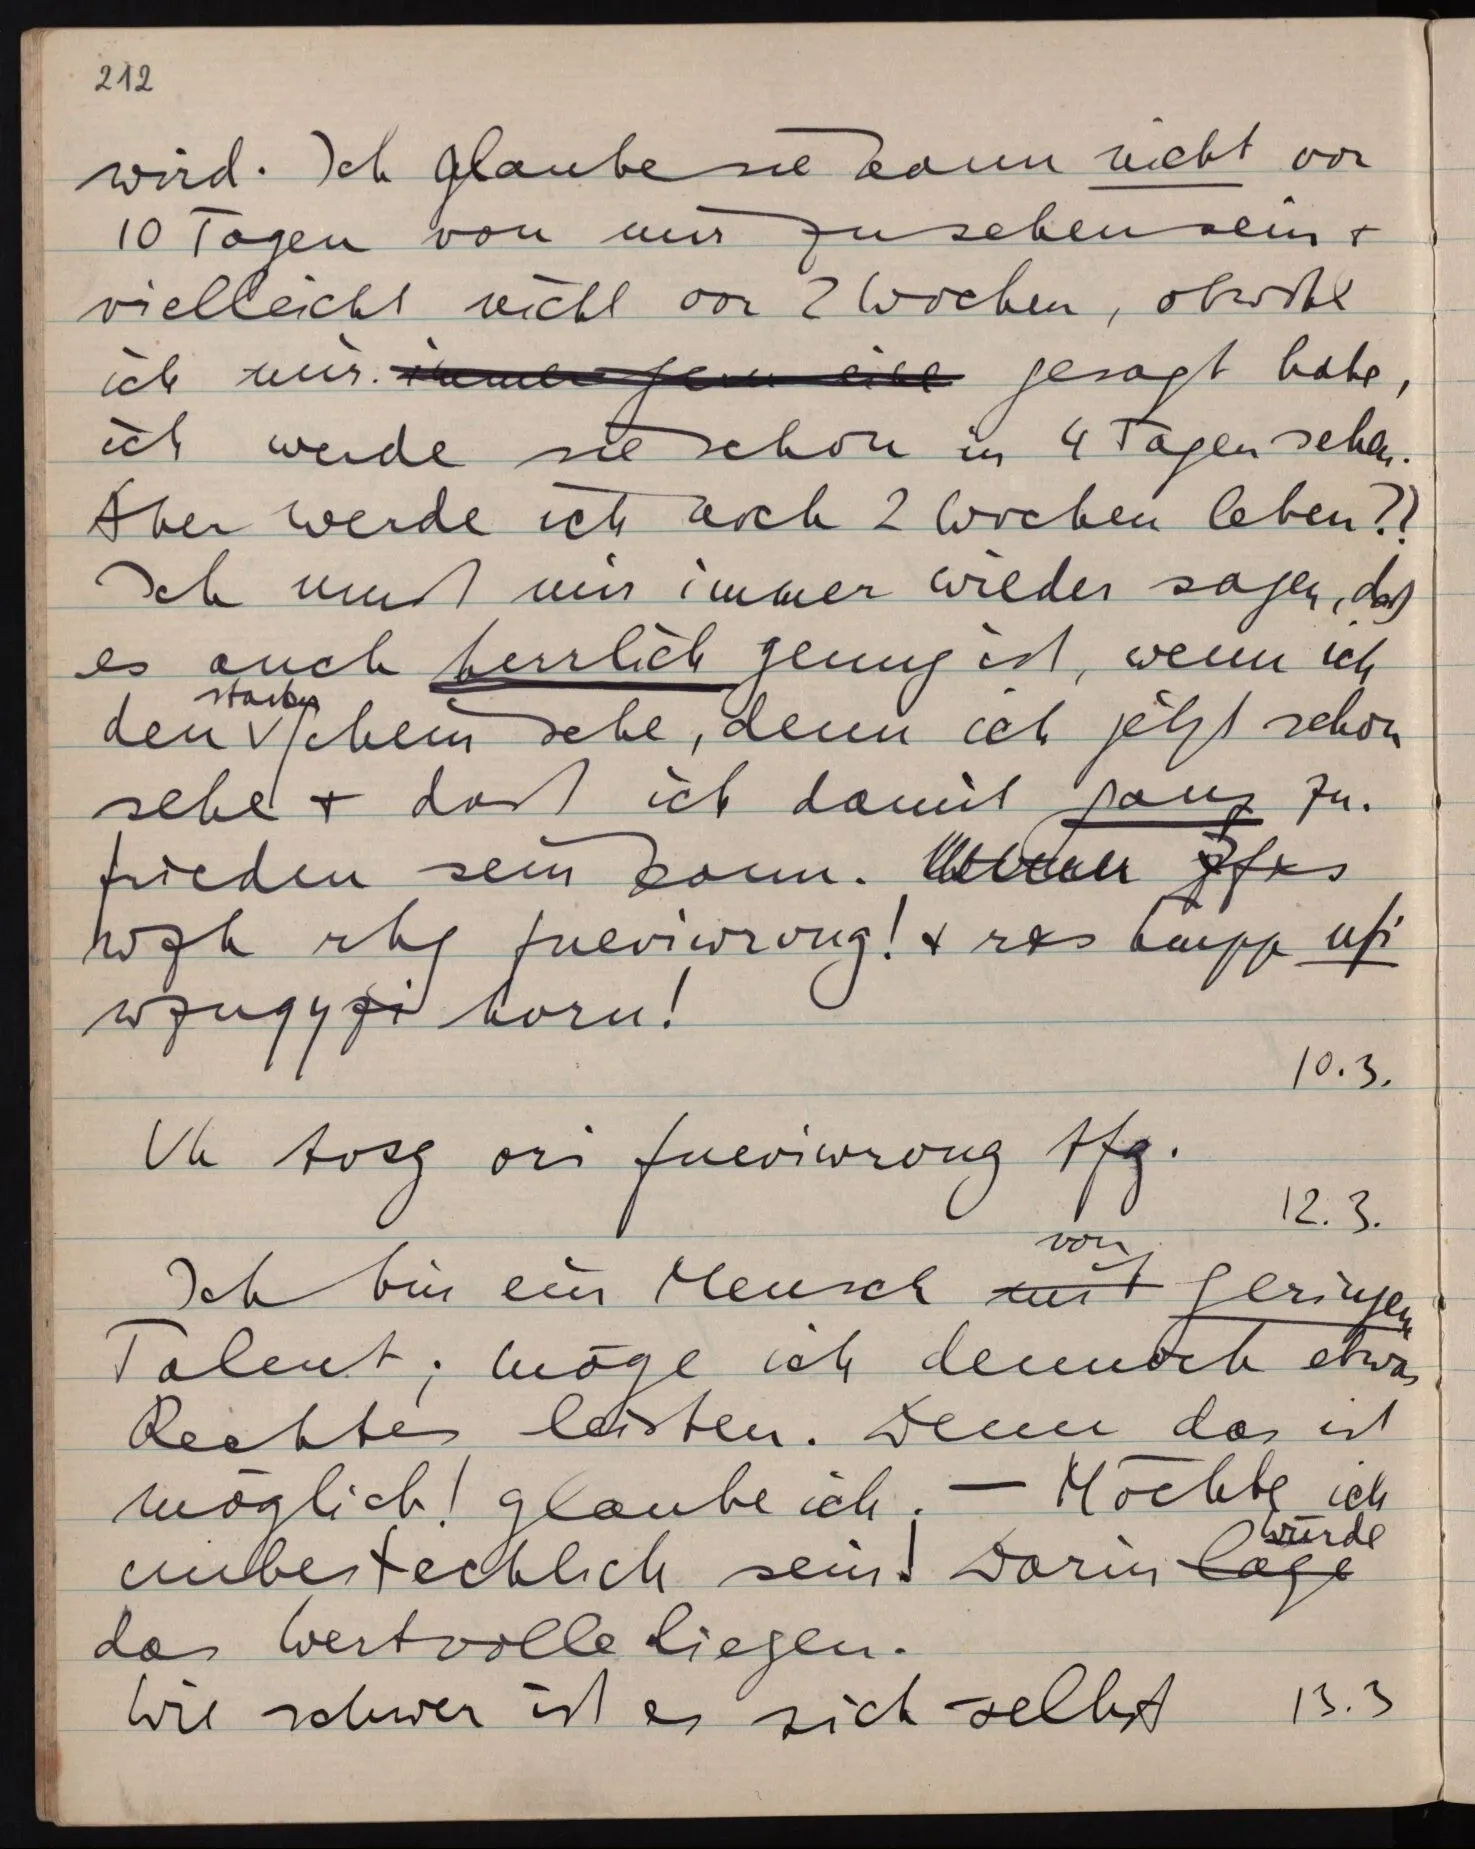 212
wird. Ich glaube sie kann nicht vor
10 Tagen von mir zu sehen sein +
vielleicht nicht vor 2 Wochen, obwohl
ich mir immer gesagt habe,
ich werde sie schon in 4 Tagen sehen.
Aber werde ich noch 2 Wochen leben??
Ich muß mir immer wieder sagen, daß
es auch herrlich genug ist, wenn ich
starken
den Schein sehe, denn ich jetzt schon
sehe + daß ich damit ganz zu-
frieden sein kann.
rhg fueviwrong! + rxs
horu!
10.3.
Vh ori fueviwrong
12.3.
von
Ich bin ein Mensch mit geringem
Talent; möge ich dennoch etwas
Rechtes leisten. Denn das ist
möglich! glaube ich. — Möchte ich
würde
unbestechlich sein! Darin läge
das Wertvolle liegen.
Wie schwer ist es sich selbst 13.3